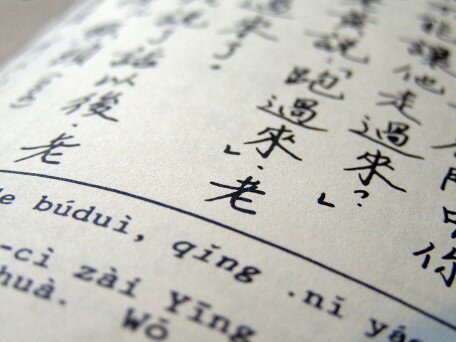 你
能讓他走過來?」
說,「跑過來.」老
來了。
說了話以後,老
búduì, qǐng .nǐ
-cì zài Yīng
huà. Wǒ